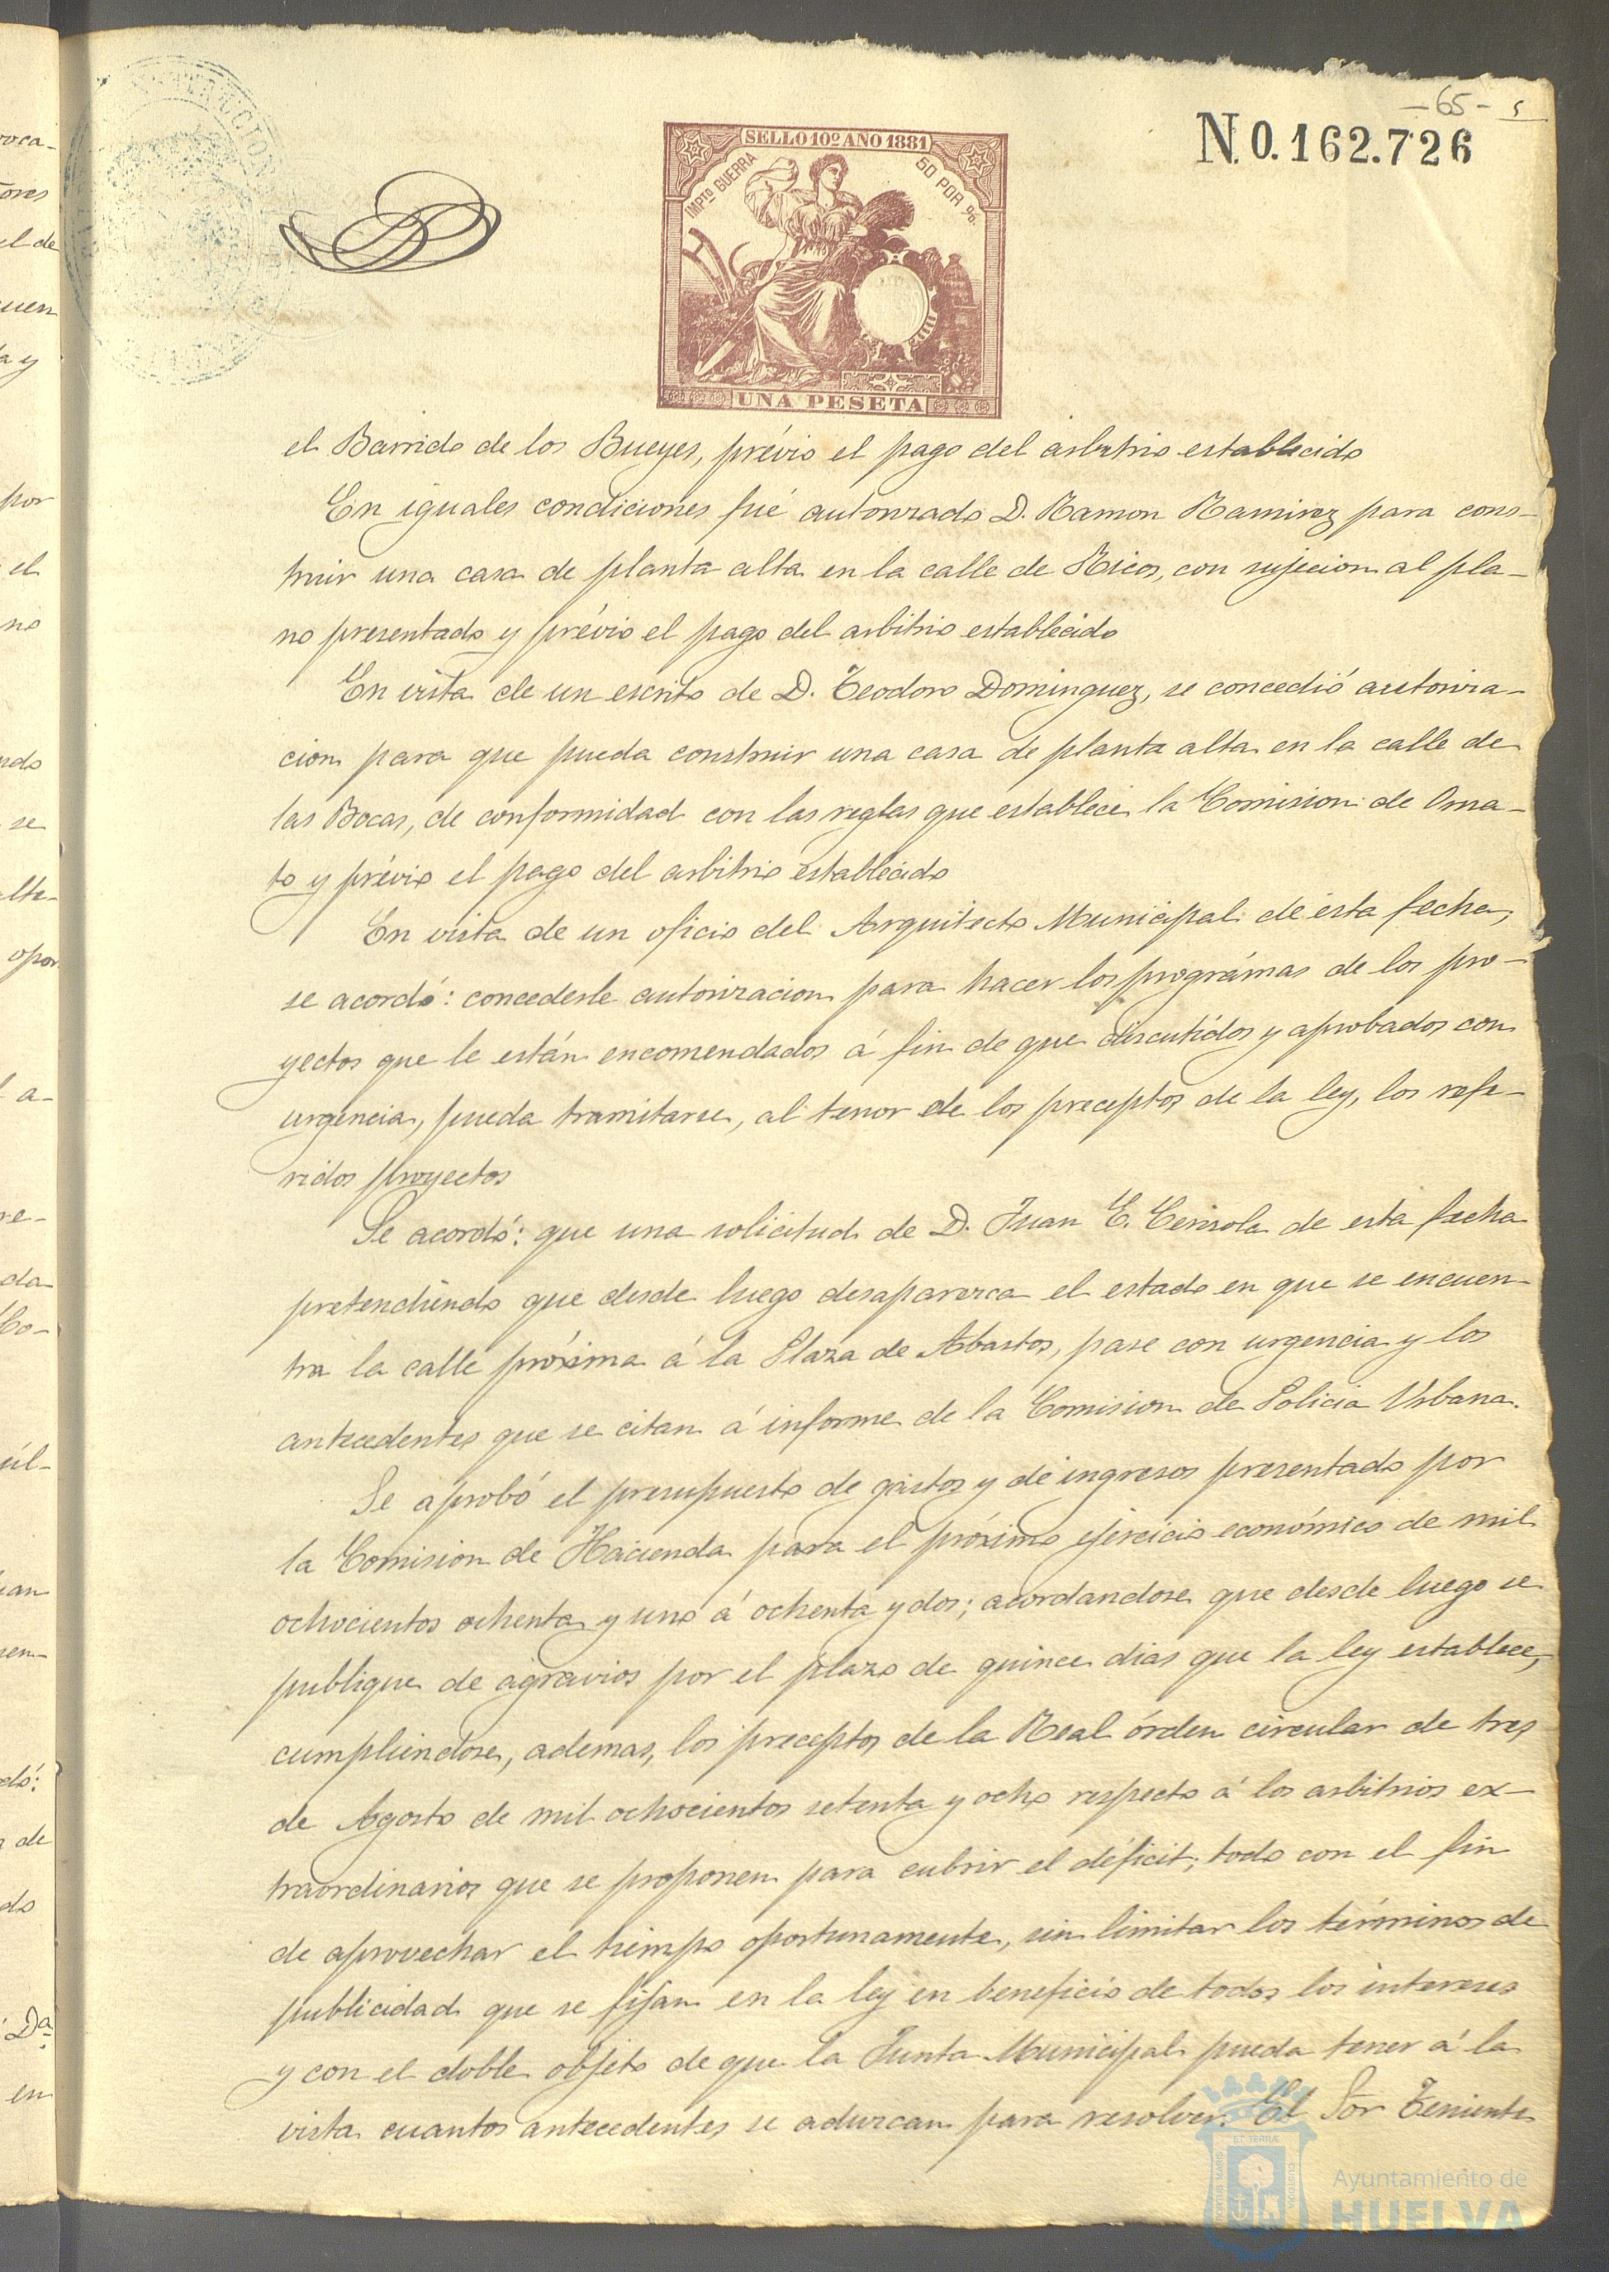 -65- 5
N. 0.162.726
SELLO 10º AÑO 1881
IMPTO GUERRA 50 POR %.
UNA PESETA
el Barrido de los Bueyes, prévio el pago del arbitrio establecido
En iguales condiciones fué autorizado D. Ramon Ramirez para cons-
truir una casa de planta alta en la calle de Ricos, con sujecion al pla-
no presentado y prévio el pago del arbitrio establecido
En vista de un escrito de D. Teodoro Dominguez, se concedió autoriza-
cion para que pueda construir una casa de planta alta en la calle de
las Bocas, de conformidad con las reglas que establece la Comision de Orna-
to y prévio el pago del arbitrio establecido
En vista de un oficio del Arquitecto Municipal de esta fecha,
se acordó: concederle autorizacion para hacer los prográmas de los pro-
yectos que le están encomendados á fin de que discutidos y aprobados con
urgencia, pueda tramitarse, al tenor de los preceptos de la ley, los refe-
ridos proyectos
Se acordó: que una solicitud de D. Juan E. Cerisola de esta fecha
pretendiendo que desde luego desaparezca el estado en que se encuen-
tra la calle próxima á la Plaza de Abastos, pase con urgencia y los
antecedentes que se citan á informe de la Comision de Policia Urbana.
Se aprobó el presupuesto de gastos y de ingresos presentado por
la Comision de Hacienda para el próximo ejercicio económico de mil
ochocientos ochenta y uno á ochenta y dos; acordandose que desde luego se
publique de agravios por el plazo de quince dias que la ley establece,
cumpliendose, ademas, los preceptos de la Real órden circular de tres
de Agosto de mil ochocientos setenta y ocho respecto á los arbitrios ex-
traordinarios que se proponen para cubrir el déficit; todo con el fin
de aprovechar el tiempo oportunamente, sin limitar los términos de
publicidad que se fijan en la ley en beneficio de todos los intereses
y con el doble objeto de que la Junta Municipal pueda tener á la
vista cuantos antecedentes se aduzcan para resolver. El Sor Teniente
Ayuntamiento de
HUELVA